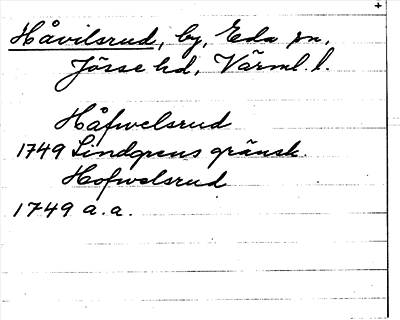 Håvilsrud, by, Eda sn.
Jösse hd, Värml. l.
Håfwelsrud
1749 Lindgrens gränsk.
Hofwelsrud
1749 a.a.